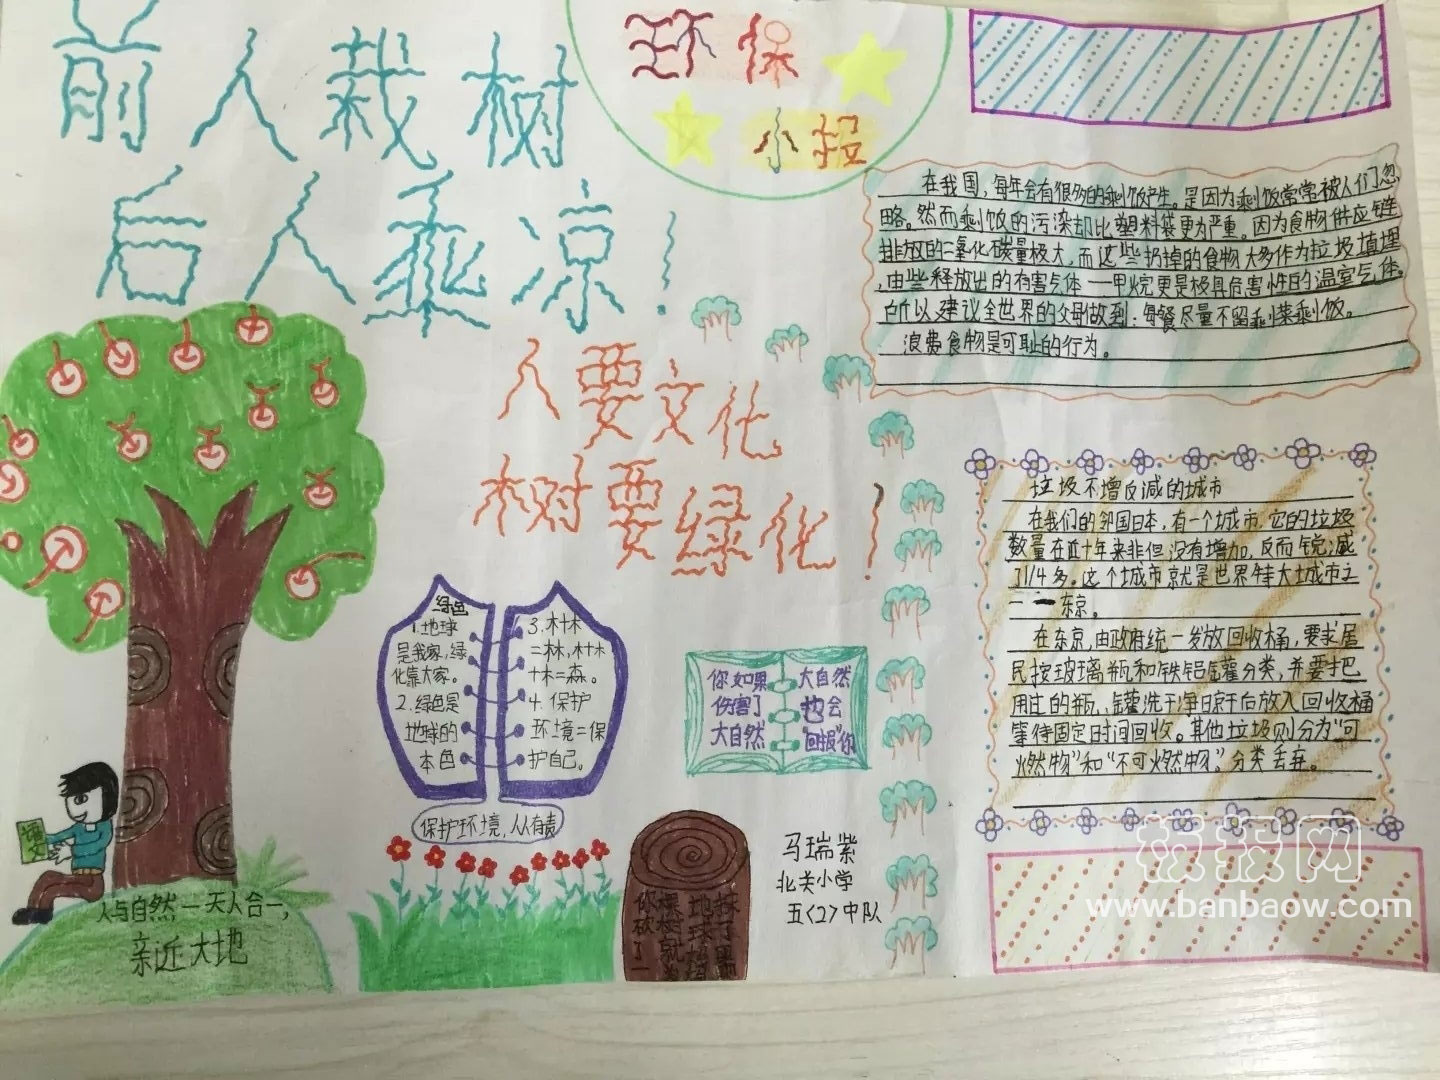 前人栽树
后人乘凉!
环保
小报
人要文化
树要绿化!
在我国,每年会有很多的剩饭产生。是因为剩饭常常被人们忽
略。然而剩饭的污染却比塑料袋更为严重。因为食物供应链
排放的二氧化碳量极大,而这些扔掉的食物大多作为垃圾填埋
,由些释放出的有害气体——甲烷更是极具危害性的温室气体。
所以建议全世界的父母做到:每餐尽量不留剩菜剩饭。
浪费食物是可耻的行为。
垃圾不增反减的城市
在我们的邻国日本,有一个城市,它的垃圾
数量在近十年来非但没有增加,反而锐减
了1/4多。这个城市就是世界特大城市之
一—东京。
在东京,由政府统一发放回收桶,要求居
民按玻璃瓶和铁铝罐分类,并要把
用过的瓶,罐洗干净晾干后放入回收桶
等待固定时间回收。其他垃圾则分为“可
燃物”和“不可燃物”,分类丢弃。
绿色
1.地球
是我家,绿
化靠大家。
2.绿色是
地球的
本色
3.木+木
=林,木+木
+木=森。
4.保护
环境=保
护自己。
保护环境,人人有责
你如果
伤害了
大自然
大自然
也会
“回报”你
马瑞紫
北关小学
五<2>中队
人与自然一天人合一,
亲近大地
板报网
www.banbaow.com